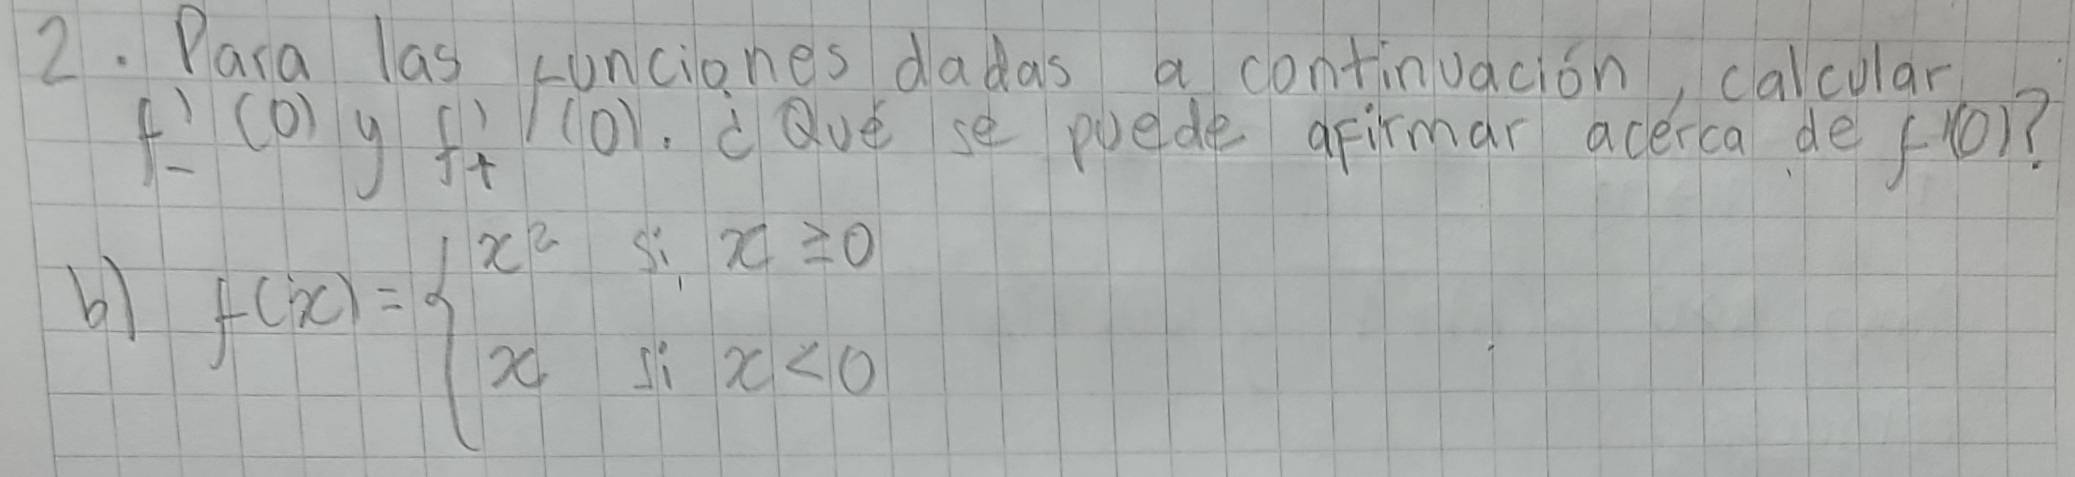 2. Para las funciones dadas a continuación, calcular
f'₋(0) y f'₊(0). ¿Qué se puede afirmar acerca de f'(0)?
b) f(x) = { x² si x ≥ 0
x si x < 0